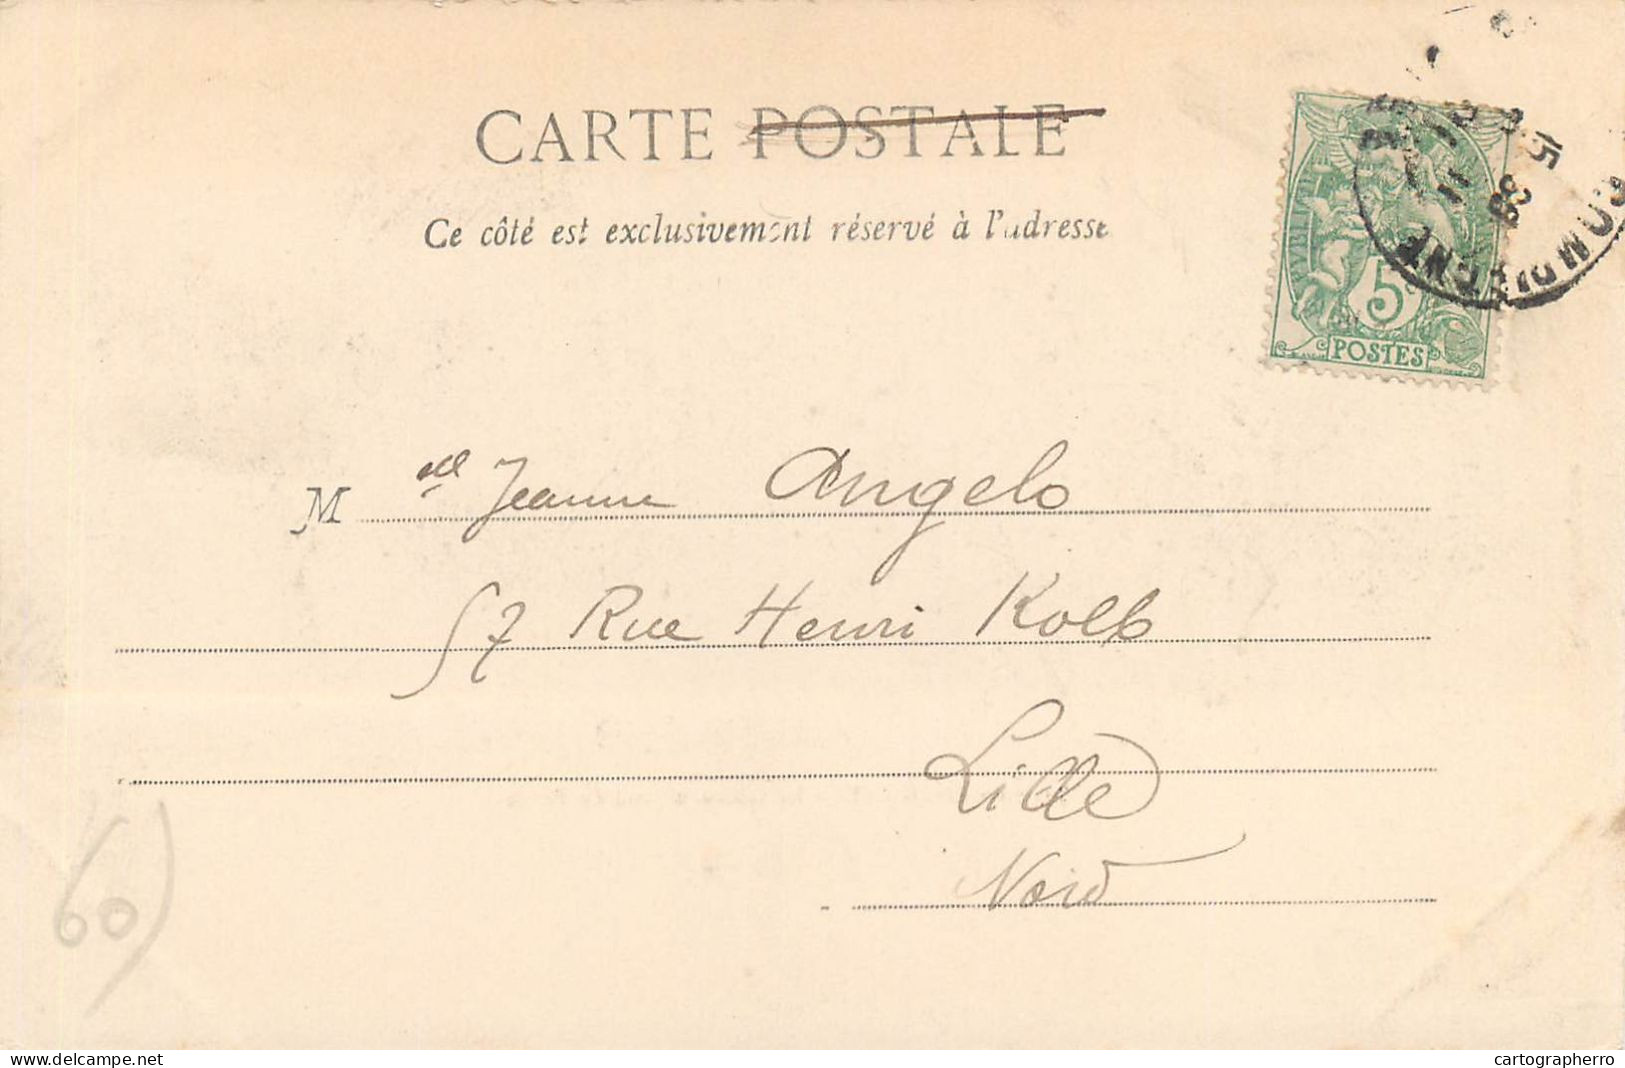 CARTE POSTALE
Ce côté est exclusivement réservé à l'adresse
5c
POSTES
COMPIEGNE
15
M elle Jeanne Angelo
57 Rue Henri Kolb
Lille
Nord
60)
delcampe.net
cartographerro